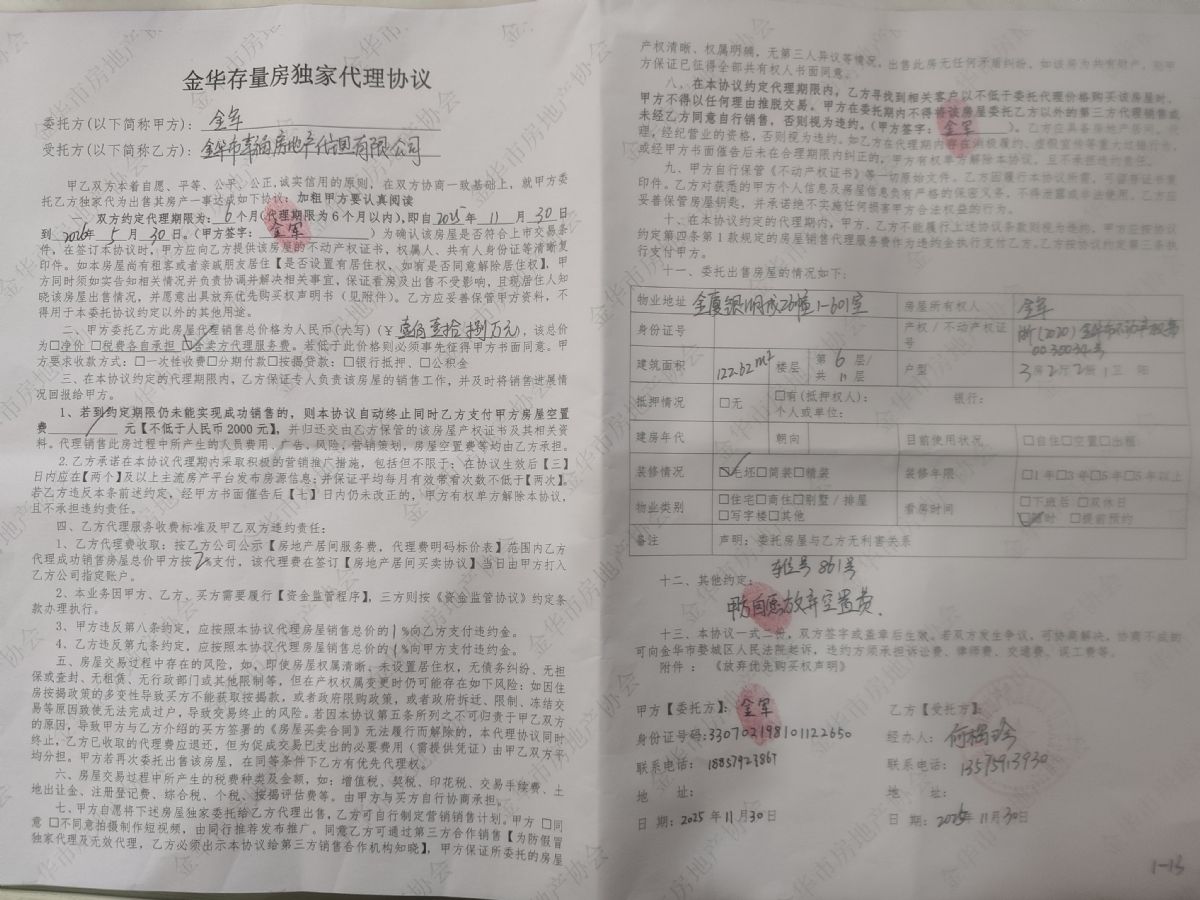 金华存量房独家代理协议
委托方(以下简称甲方)：金军
受托方(以下简称乙方)：金华市幸福房地产代理有限公司
甲乙双方本着自愿、平等、公平、公正,诚实信用的原则，在双方协商一致基础上，就甲方委
托乙方独家代为出售其房产一事达成如下协议：加粗甲方要认真阅读
一、双方约定代理期限为：6个月(代理期限为6个月以内),即自2025年11月30日
到2026年5月30日。(甲方签字：金军)为确认该房屋是否符合上市交易条
件，在签订本协议时，甲方应向乙方提供该房屋的不动产权证书，权属人、共有人身份证等清晰复
印件。如本房屋尚有租客或者亲戚朋友居住【是否设置有居住权，如有是否同意解除居住权】，甲
方同时须如实告知相关情况并负责协调并解决相关事宜，保证看房及出售不受影响，且现居住人知
晓该房屋出售情况，并愿意出具放弃优先购买权声明书（见附件）。乙方应妥善保管甲方资料，不
得用于本委托协议约定以外的其他用途。
二、甲方委托乙方此房屋代理销售总价格为人民币(大写)(￥壹佰壹拾捌万元)，该总价
为□净价 □税费各自承担 ☑含卖方代理服务费。若低于此价格则必须事先征得甲方书面同意。甲
方要求收款方式：□一次性收费□分期付款□按揭贷款：□银行抵押、□公积金
三、在本协议约定的代理期限内，乙方保证专人负责该房屋的销售工作，并及时将销售进展情
况回报给甲方。
1、若到约定期限仍未能实现成功销售的，则本协议自动终止同时乙方支付甲方房屋空置
费 / 元【不低于人民币2000元】，并归还交由乙方保管的该房屋产权证书及其相关资
料。代理销售此房过程中所产生的人员费用、广告、风险、营销策划，房屋空置费等均由乙方承担。
2.乙方承诺在本协议代理期内采取积极的营销推广措施，包括但不限于：在协议生效后【三】
日内应在【两个】及以上主流房产平台发布房源信息；并保证平均每月有效带看次数不低于【两次】。
若乙方违反本条前述约定，经甲方书面催告后【七】日内仍未改正的，甲方有权单方解除本协议，
且不承担违约责任。
四、乙方代理服务收费标准及甲乙双方违约责任：
1、乙方代理费收取：按乙方公司公示【房地产居间服务费，代理费明码标价表】范围内乙方
代理成功销售房屋总价甲方按2%支付，该代理费在签订【房地产居间买卖协议】当日由甲方打入
乙方公司指定账户。
2、本业务因甲方、乙方、买方需要履行【资金监管程序】，三方则按《资金监管协议》约定条
款办理执行。
3、甲方违反第八条约定，应按照本协议代理房屋销售总价的1%向乙方支付违约金。
4、乙方违反第九条约定，应按照本协议代理房屋销售总价的1%向甲方支付违约金。
五、房屋交易过程中存在的风险，如，即使房屋权属清晰、未设置居住权，无债务纠纷、无担
保或查封、无租赁、无行政部门或其他限制等，但在产权权属变更时仍可能存在如下风险：如因住
房按揭政策的多变性导致买方不能获取按揭款，或者政府限购政策，或者政府拆迁、限制、冻结交
易等原因致使无法完成过户，导致交易终止的风险。若因本协议第五条所列之不可归责于甲乙双方
的原因，导致甲方与乙方介绍的买方签署的《房屋买卖合同》无法履行而解除的，本代理协议同时
终止，乙方已收取的代理费应退还，但为促成交易已支出的必要费用(需提供凭证)由甲乙双方平
均分担。甲方若再次委托出售该房屋，在同等条件下乙方有优先代理权。
六、房屋交易过程中所产生的税费种类及金额，如：增值税，契税，印花税、交易手续费、土
地出让金、注册登记费、综合税、个税、按揭评估费等。由甲方与买方自行协商承担。
七、甲方自愿将下述房屋独家委托给乙方代理出售，乙方可自行制定营销销售计划。甲方 □同
意 □不同意拍摄制作短视频，由同行推荐发布推广。同意乙方可通过第三方合作销售【为防假冒
独家代理及无效代理，乙方必须出示本协议给第三方销售合作机构知晓】，甲方保证所委托的房屋
产权清晰、权属明确，无第三人异议等情况。出售此房无任何矛盾纠纷。如该房为共有财产，则甲
方保证已征得全部共有权人书面同意。
八、在本协议约定代理期限内，乙方寻找到相关客户以不低于委托代理价格购买该房屋时，
甲方不得以任何理由推脱交易。甲方在委托期内不得将该房屋委托乙方以外的第三方代理销售或
未经乙方同意自行销售，否则视为违约。(甲方签字：金军)。乙方应具备房地产居间、代
理，经纪营业的资格，否则视为违约。如乙方在代理期限内存在消极履约、虚假宣传等重大过错行为，
或经甲方书面催告后未在合理期限内纠正的，甲方有权单方解除本协议，且不承担违约责任。
九、甲方自行保管《不动产权证书》等一切原始文件。乙方因履行本协议所需，可留存证书复
印件。乙方对获悉的甲方个人信息及房屋信息负有严格的保密义务，不得泄露或非法使用。乙方应
妥善保管房屋钥匙，并承诺绝不实施任何损害甲方合法权益的行为。
十、在本协议约定的代理期内，甲方、乙方不能履行上述协议条款则视为违约，甲方应按协议
约定第四条第1款规定的房屋销售代理服务费作为违约金执行支付乙方。乙方按协议约定第三条执
行支付甲方。
十一、委托出售房屋的情况如下：
物业地址 金厦银湖城26幢1-601室 房屋所有权人 金军
身份证号 产权/不动产权证号 浙(2020)金华市不动产权第0030034号
建筑面积 122.62m² 楼层 第6层/共11层 户型 3房2厅2厨1卫 阳
抵押情况 □无 □有(抵押权人)： 银行：
个人或单位：
建房年代 朝向 目前使用状况 □自住□空置□出租
装修情况 ☑毛坯□简装□精装 装修年限 □1年□3年□5年□5年以上
物业类别 □住宅□商住□别墅/排屋 □写字楼□其他 看房时间 □下班后 □双休日 ☑随时 □提前预约
备注 声明：委托房屋与乙方无利害关系
车位号861号
十二、其他约定：
甲方自愿放弃空置费.
十三、本协议一式二份，双方签字或盖章后生效。若双方发生争议，可协商解决，协商不成的
可向金华市婺城区人民法院起诉，违约方须承担诉讼费、律师费、交通费、误工费等。
附件：《放弃优先购买权声明》
甲方【委托方】：金军 乙方【受托方】：
身份证号码：330702198101122650 经办人：何梅珍
联系电话：18857923867 联系电话：13575913930
地 址： 地 址：
日 期：2025年11月30日 日 期：2025年11月30日
1-13